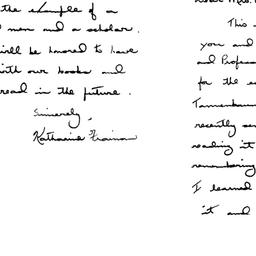 the example of a
man and a scholar.
will be honored to have
with our books and
read in the future.
Sincerely,
Katharine
This
you and
and Profess
for the
recently
reading it
remembering
I learned
it and